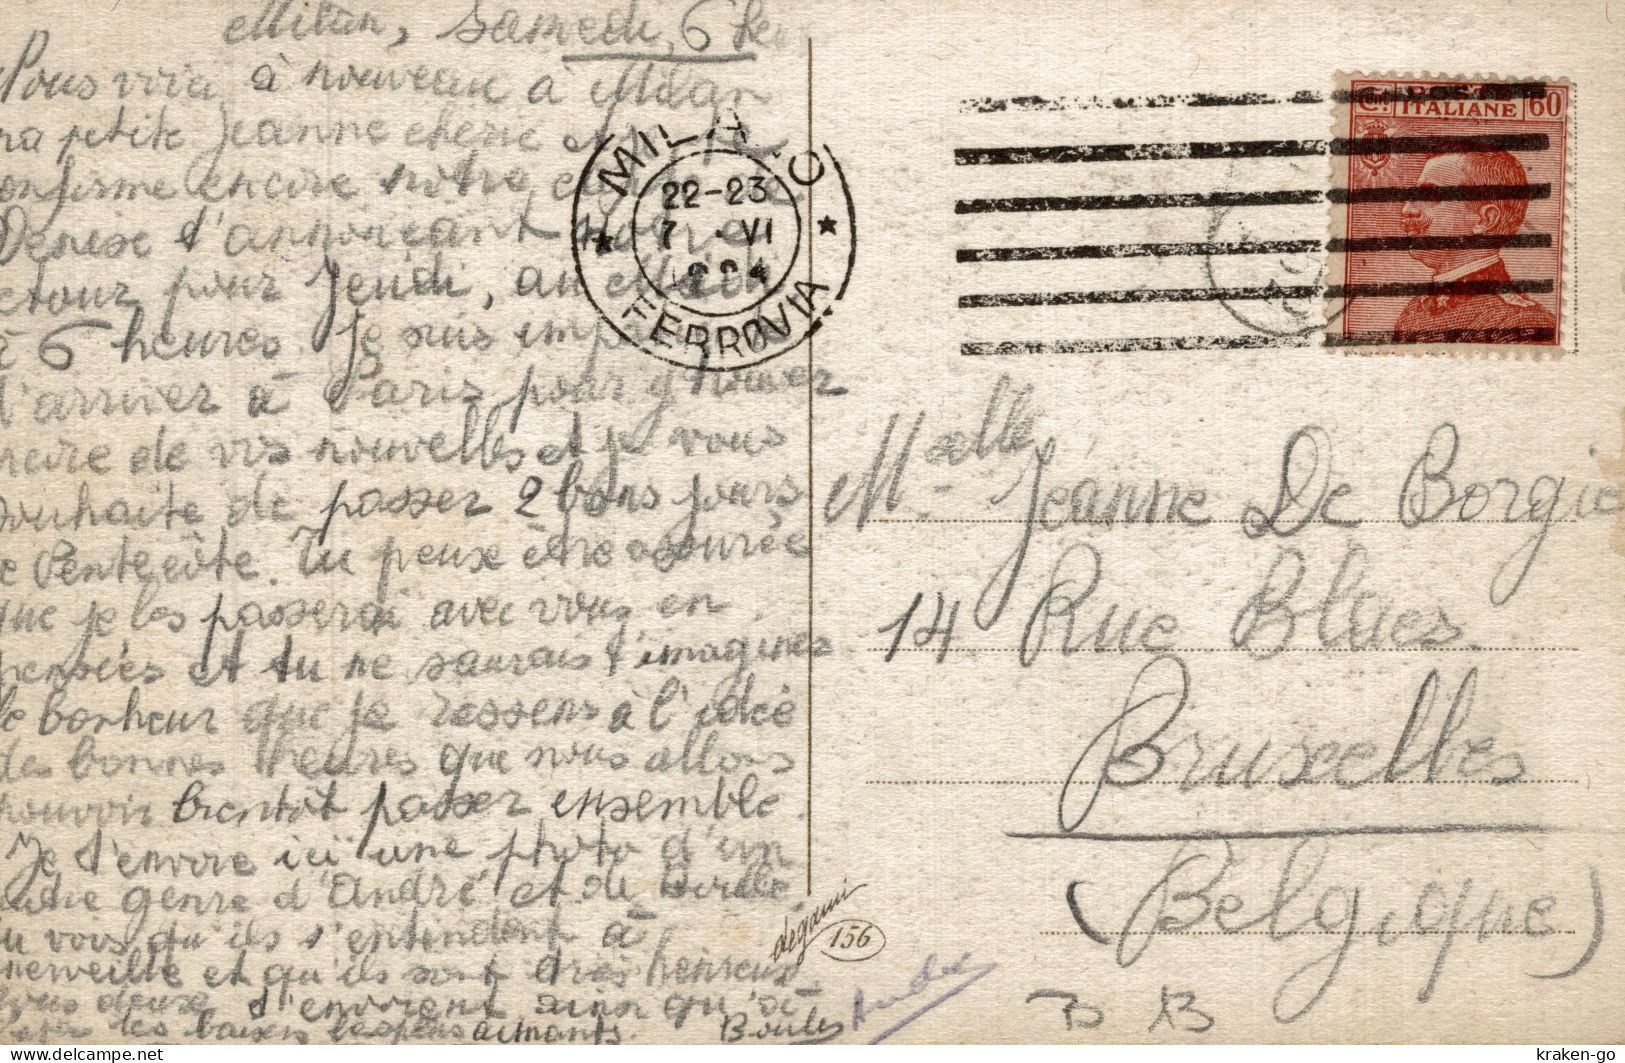 Milan, Samedi, 6
Nous voici à nouveau à Milan
ma petite Jeanne cherie
confirme encore notre
Denise t'annonçant notre
retour pour Jeudi, au
à 6 heures. Je suis
d'arriver à Paris pour y trouver
de vos nouvelles et je vous
souhaite de passer 2 bons jours
de Pentecôte. Tu peux être assurée
que je les passerai avec vous en
pensées et tu ne saurais t'imaginer
le bonheur que je ressens à l'idée
des bonnes heures que nous allons
pouvoir bientôt passer ensemble.
Je t'envoie ici une photo d'un
autre genre d'André et de
tu vois qu'ils s'entendent à
merveille et qu'ils sont très heureux
tous deux t'envoient ainsi qu'à
les baisers les plus aimants.
MILANO
22-23
7 · VI
1924
FERROVIA
Cent POSTE ITALIANE 60
Melle Jeanne De Borgie
14 Rue Blaes.
Bruxelles
(Belgique)
degami
156
B B
delcampe.net
kraken-go